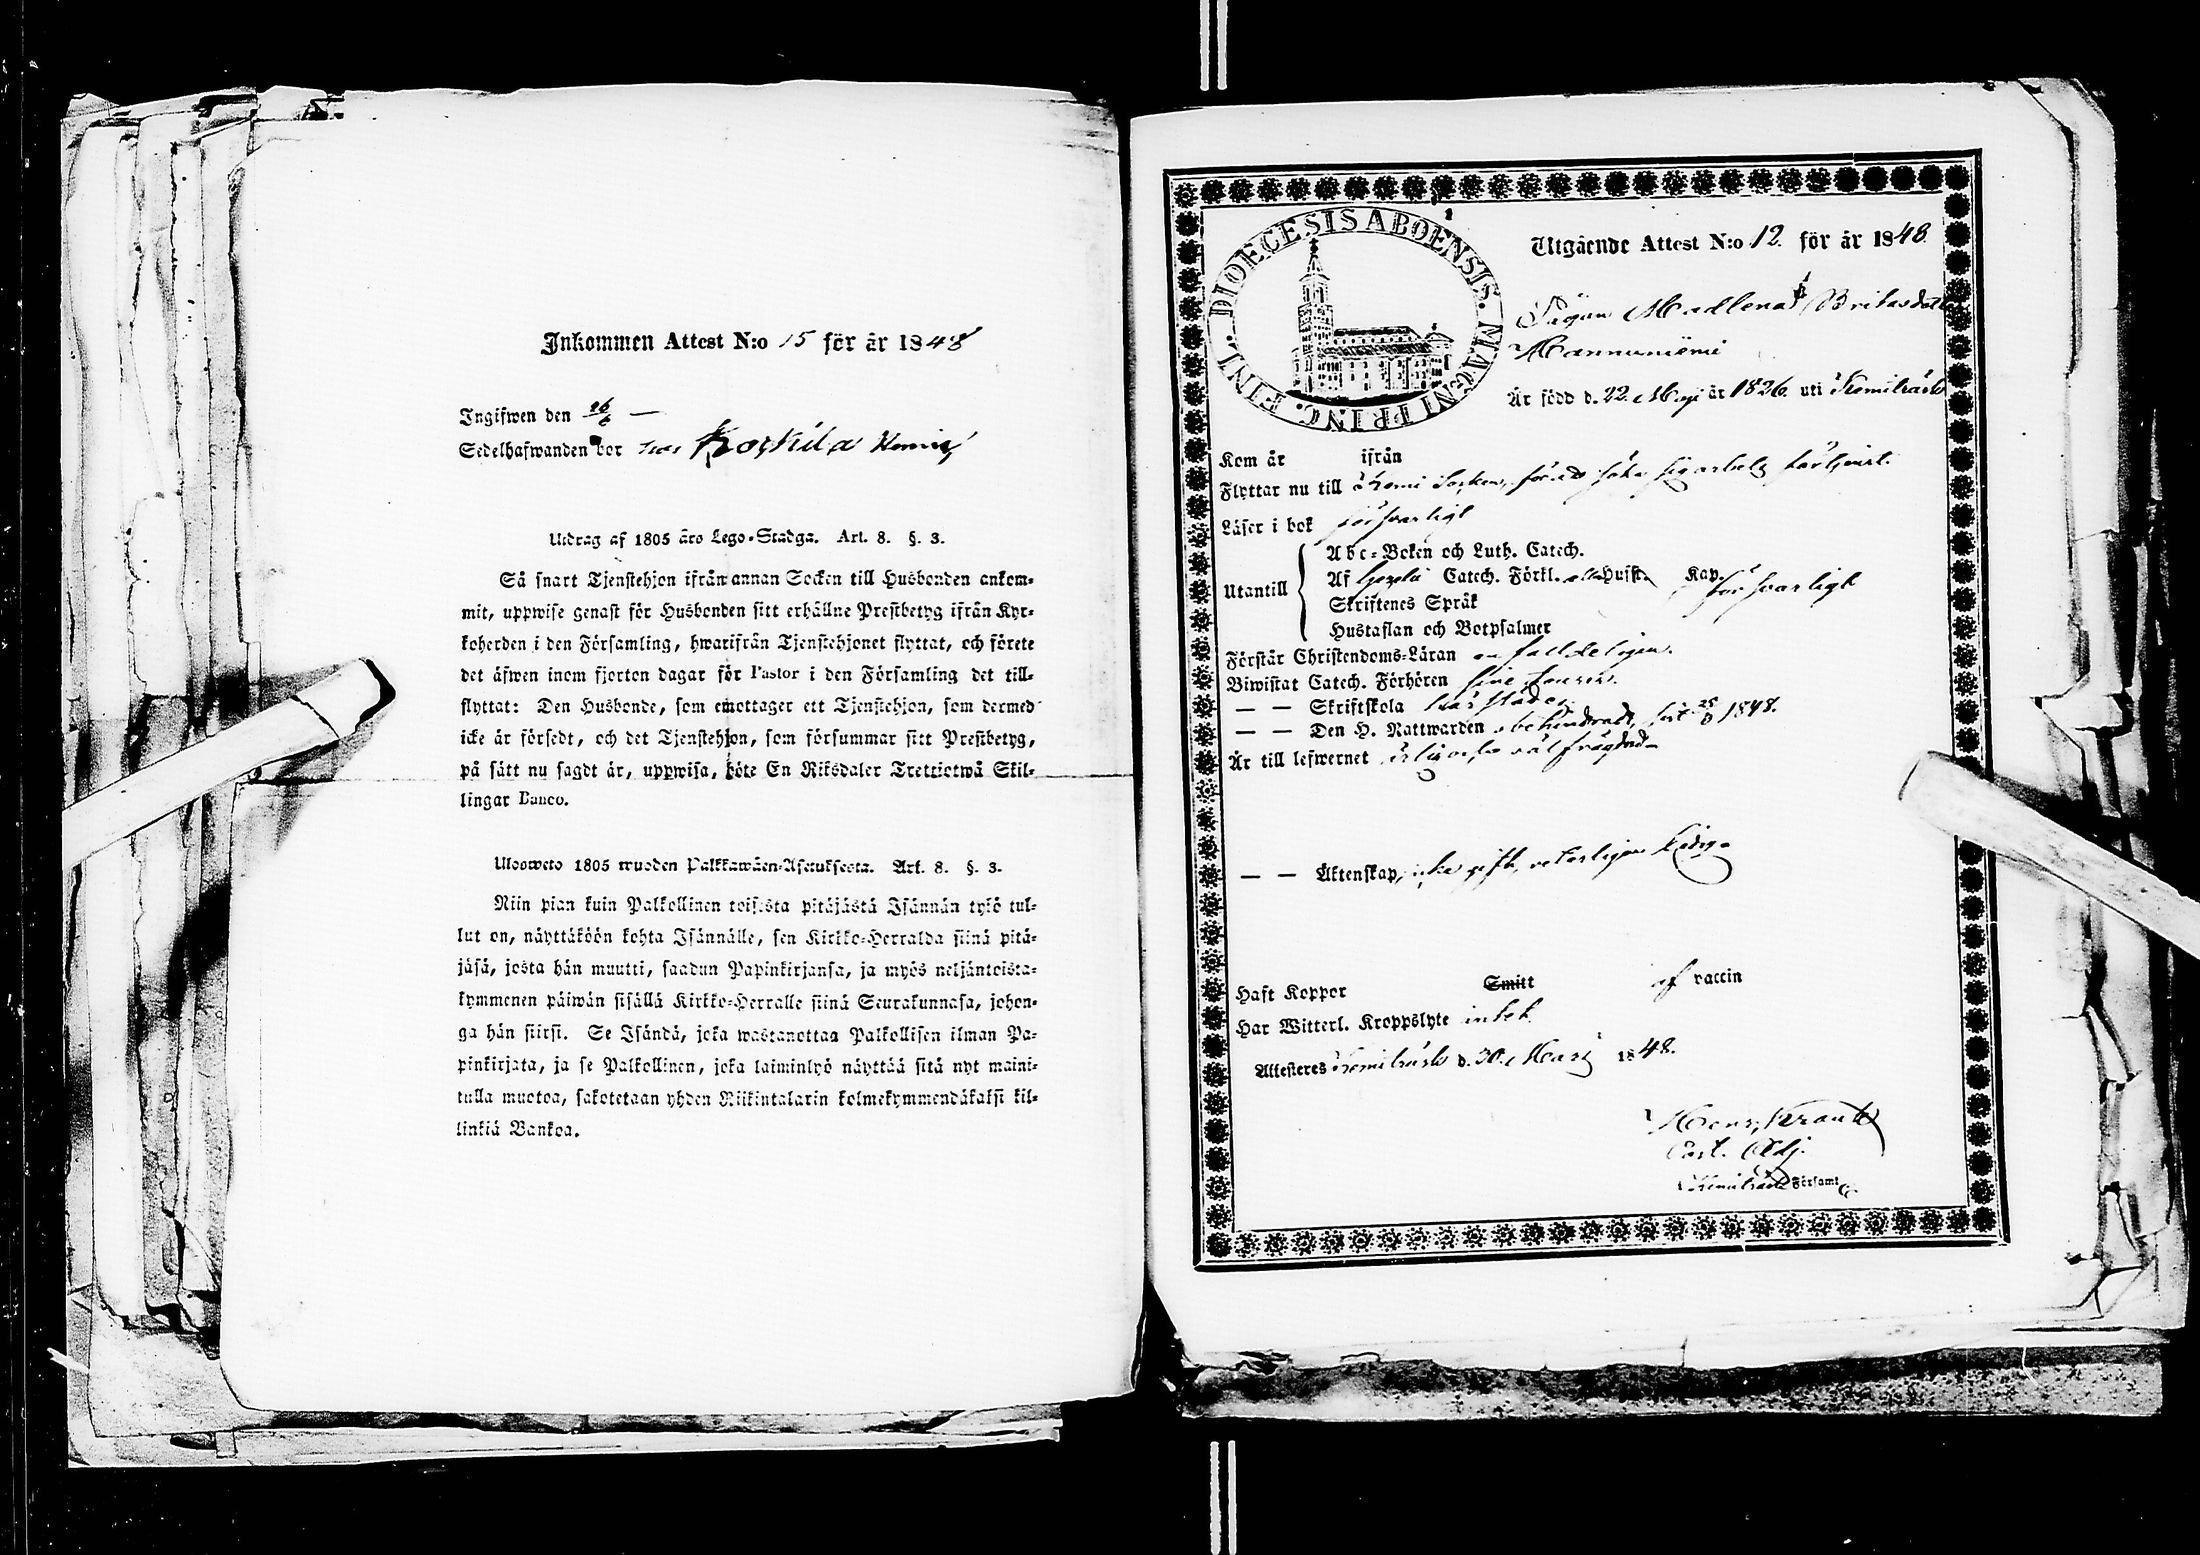 Inkommen Attest N:o 15 för år 1848
Ingifwen den 26/6 —
Sedelhafwanden bor hos Korkila Kemi
Utdrag af 1805 års Lego-Stadga. Art. 8. §. 3.
Så snart Tjenstehjon ifrån annan Socken till Husbonden ankom-
mit, uppwise genast för Husbonden sitt erhållne Prestbetyg ifrån Kyr-
koherden i den Församling, hwarifrån Tjenstehjonet flyttat, och förete
det äfwen inom fjorton dagar för Pastor i den Församling det till-
flyttat: Den Husbonde, som emottager ett Tjenstehjon, som dermed
icke är försedt, och det Tjenstehjon, som försummar sitt Prestbetyg,
på sätt nu sagdt är, uppwisa, böte En Riksdaler Trettiotwå Skil-
lingar Banco.
Ulosweto 1805 wuoden Palkkawäen-Asetuksesta. Art. 8. §. 3.
Niin pian kuin Palkollinen toisesta pitäjästä Isännän työ tul-
lut on, näyttäköön kohta Isännälle, sen Kirkko-Herralda siinä pitä-
jäsä, josta hän muutti, saadun Papinkirjansa, ja myös neljäntoista-
kymmenen päiwän sisällä Kirkko-Herralle siinä Seurakunnasa, johon-
ga hän siirsi. Se Isändä, joka wastanottaa Palkollisen ilman Pa-
pinkirjata, ja se Palkollinen, joka laiminlyö näyttää sitä nyt maini-
tulla muotoa, sakotetaan yhden Riikintalarin kolmekymmendäkaksi kil-
linkiä Bankoa.
DIOECESIS ABOENSIS. MAGNI PRINC. FINL.
Utgående Attest N:o 12. för år 1848
Pigan Madlena Britasdotter
Mannuniemi
Är född d. 22. Maji år 1826. uti Kemiträsk
Kom år ifrån
Flyttar nu till Kemi Socken, för att söka sig arbets förtjenst.
Läser i bok försvarligt
Utantill
Abc-Boken och Luth. Catech.
Af Catech. Förkl. Hust. Kap. försvarligt
Skriftenes Språk
Hustaflan och Botpsalmer
Förstår Christendoms-Läran enfalldeligen.
Biwistat Catech. Förhören sine
— — Skriftskola
— — Den H. Nattwarden obehindradt, sist 1848.
Är till lefwernet ärlig och väl frägdad
— — Äktenskap, icke gift, veterligen ledig.
Haft Koppor Smitt af vaccin
Har Witterl. Kroppslyte intet
Attesteras Kemiträsk d. 30. Maji 1848.
Henr.
Past. Adj.
Kemiträsk Församl.